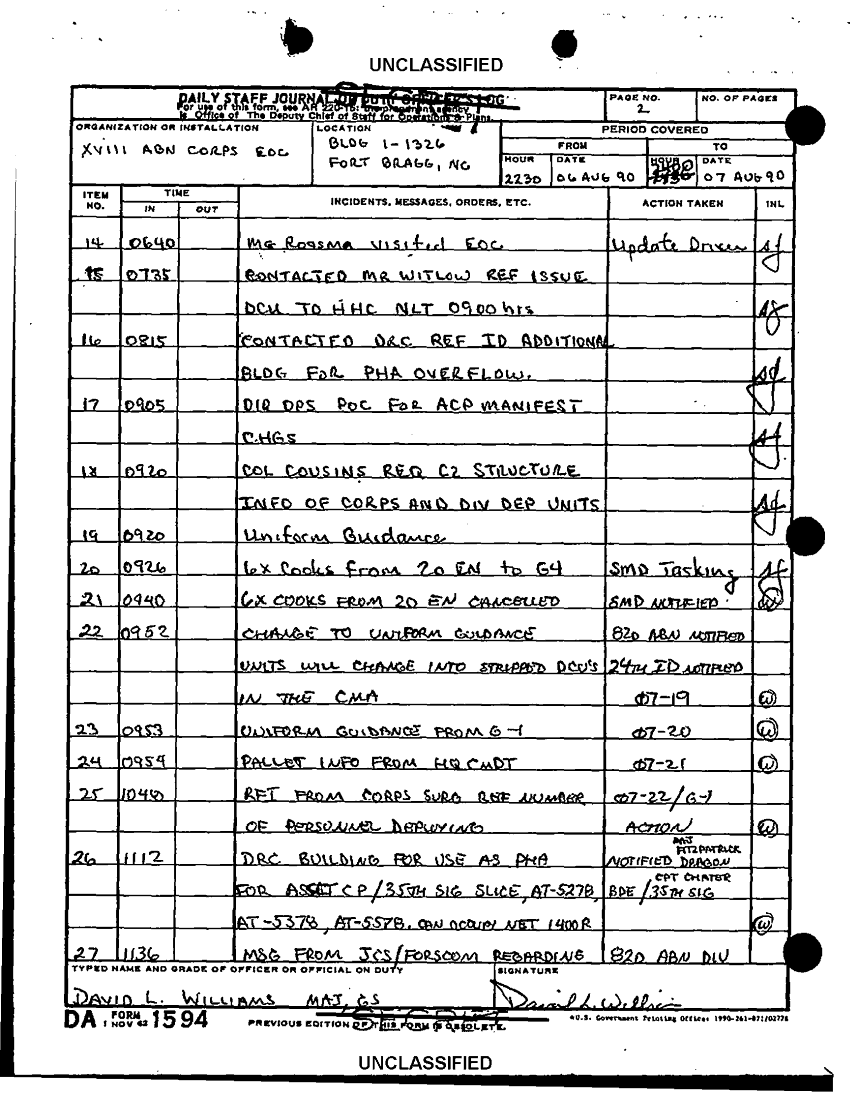 UNCLASSIFIED
DAILY STAFF JOURNAL OR DUTY OFFICER'S LOG
For use of this form, see AR 220-15; the proponent agency
is Office of The Deputy Chief of Staff for Operations & Plans.
PAGE NO.
2
NO. OF PAGES
ORGANIZATION OR INSTALLATION
XVIII ABN CORPS EOC
LOCATION
BLDG 1-1326
FORT BRAGG, NC
PERIOD COVERED
FROM TO
HOUR DATE HOUR DATE
2230 06 AUG 90 2400 07 AUG 90
ITEM NO. TIME INCIDENTS, MESSAGES, ORDERS, ETC. ACTION TAKEN INL
IN OUT
14 0640 MG ROOSMA VISITED EOC Update Driver
15 0735 CONTACTED MR WITLOW REF ISSUE
DCU TO HHC NLT 0900 hrs
16 0815 CONTACTED DRC REF ID ADDITIONAL
BLDG FOR PHA OVERFLOW.
17 0905 DIR OPS POC FOR ACP MANIFEST
CHGS
18 0920 COL COUSINS REQ C2 STRUCTURE
INFO OF CORPS AND DIV DEP UNITS
19 0920 Uniform Guidance
20 0926 6x Cooks from 20 EN to G4 SMD Tasking
21 0940 6X COOKS FROM 20 EN CANCELLED SMD NOTIFIED W
22 0952 CHANGE TO UNIFORM GUIDANCE 82D ABN NOTIFIED
UNITS WILL CHANGE INTO STRIPPED DCU'S 24TH ID NOTIFIED
IN THE CMA 07-19 W
23 0953 UNIFORM GUIDANCE FROM G-1 07-20 W
24 0954 PALLET INFO FROM HQ CMDT 07-21 W
25 1040 RFI FROM CORPS SURG REF NUMBER 07-22/G-1
OF PERSONNEL DEPLOYING ACTION W
MAJ FITZPATRICK
26 1112 DRC BUILDING FOR USE AS PHA NOTIFIED DRAGON
CPT CHATER
FOR ASSLT CP/35TH SIG SLICE, AT-5278, BDE/35TH SIG
AT-5378, AT-5578. CAN OCCUPY NET 1400R W
27 1136 MSG FROM JCS/FORSCOM REGARDING 82D ABN DIV
TYPED NAME AND GRADE OF OFFICER OR OFFICIAL ON DUTY SIGNATURE
DAVID L. WILLIAMS MAJ, GS David L. Williams
DA FORM 1 NOV 62 1594 PREVIOUS EDITION OF THIS FORM IS OBSOLETE. U.S. Government Printing Office: 1990-261-871/02776
UNCLASSIFIED